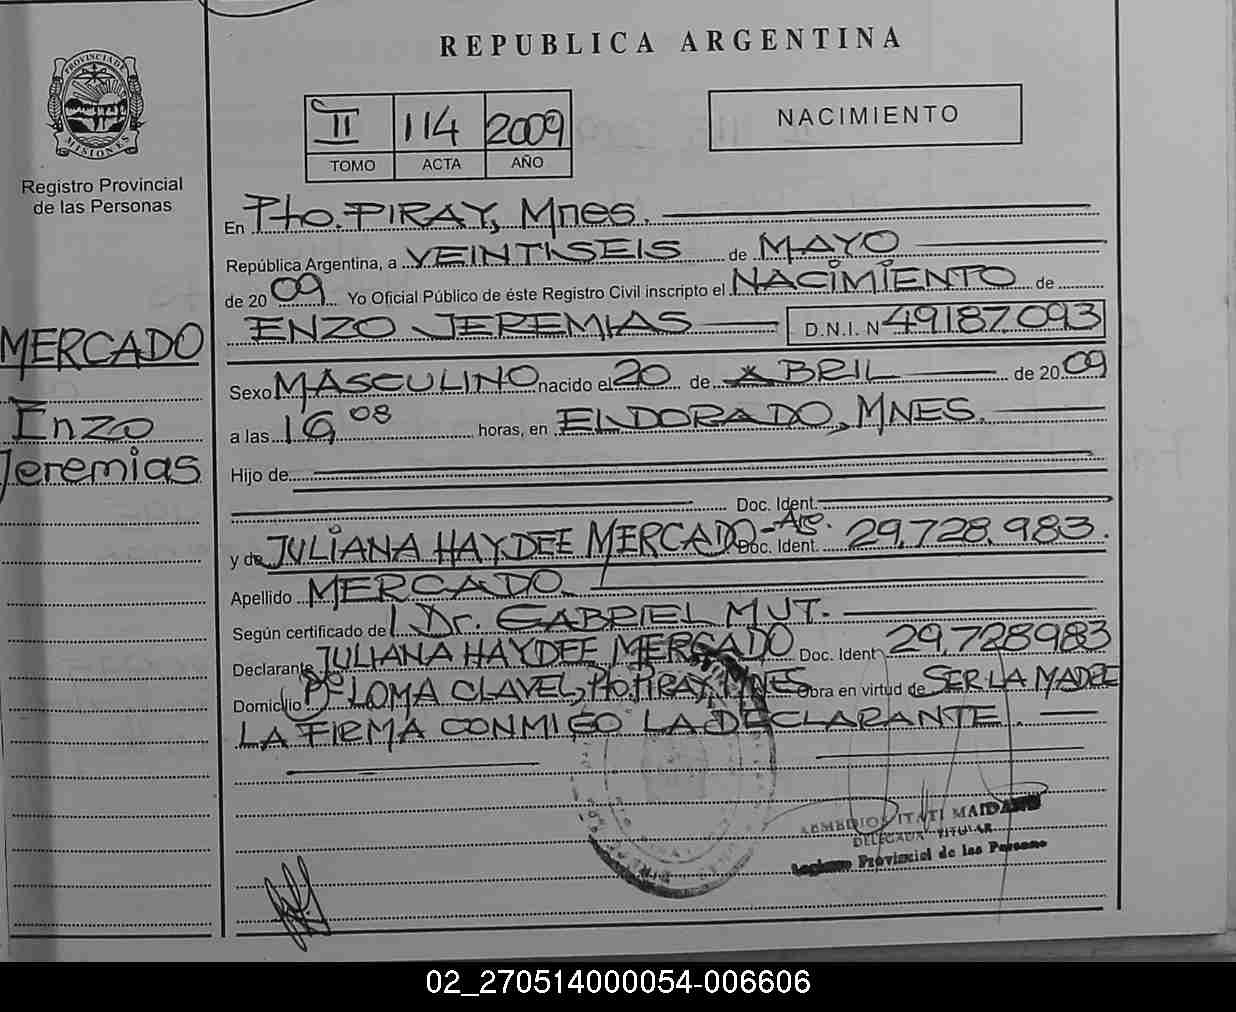 REPUBLICA ARGENTINA
PROVINCIA DE MISIONES
Registro Provincial
de las Personas
II 114 2009
TOMO ACTA AÑO
NACIMIENTO
En Pto. PIRAY, Mnes.
República Argentina, a VEINTISEIS de MAYO
de 2009 Yo Oficial Público de éste Registro Civil inscripto el NACIMIENTO de
ENZO JEREMIAS D.N.I. N 49187.093
MERCADO
Enzo
Jeremias
Sexo MASCULINO nacido el 20 de ABRIL de 2009
a las 16 08 horas, en ELDORADO, MNES.
Hijo de
Doc. Ident.
y de JULIANA HAYDEE MERCADO - Arg. Doc. Ident. 29.728.983.
Apellido MERCADO.
Según certificado de Dr. GABRIEL MUT.
Declarante JULIANA HAYDEE MERCADO Doc. Ident 29.728983
Domicilio Bº LOMA CLAVEL, Pto. PIRAY, MNES Obra en virtud de SER LA MADRE
LA FIRMA CONMIGO LA DECLARANTE.
ITATI MAIDANA
DELEGADA TITULAR
Provincial de las Personas
02_270514000054-006606